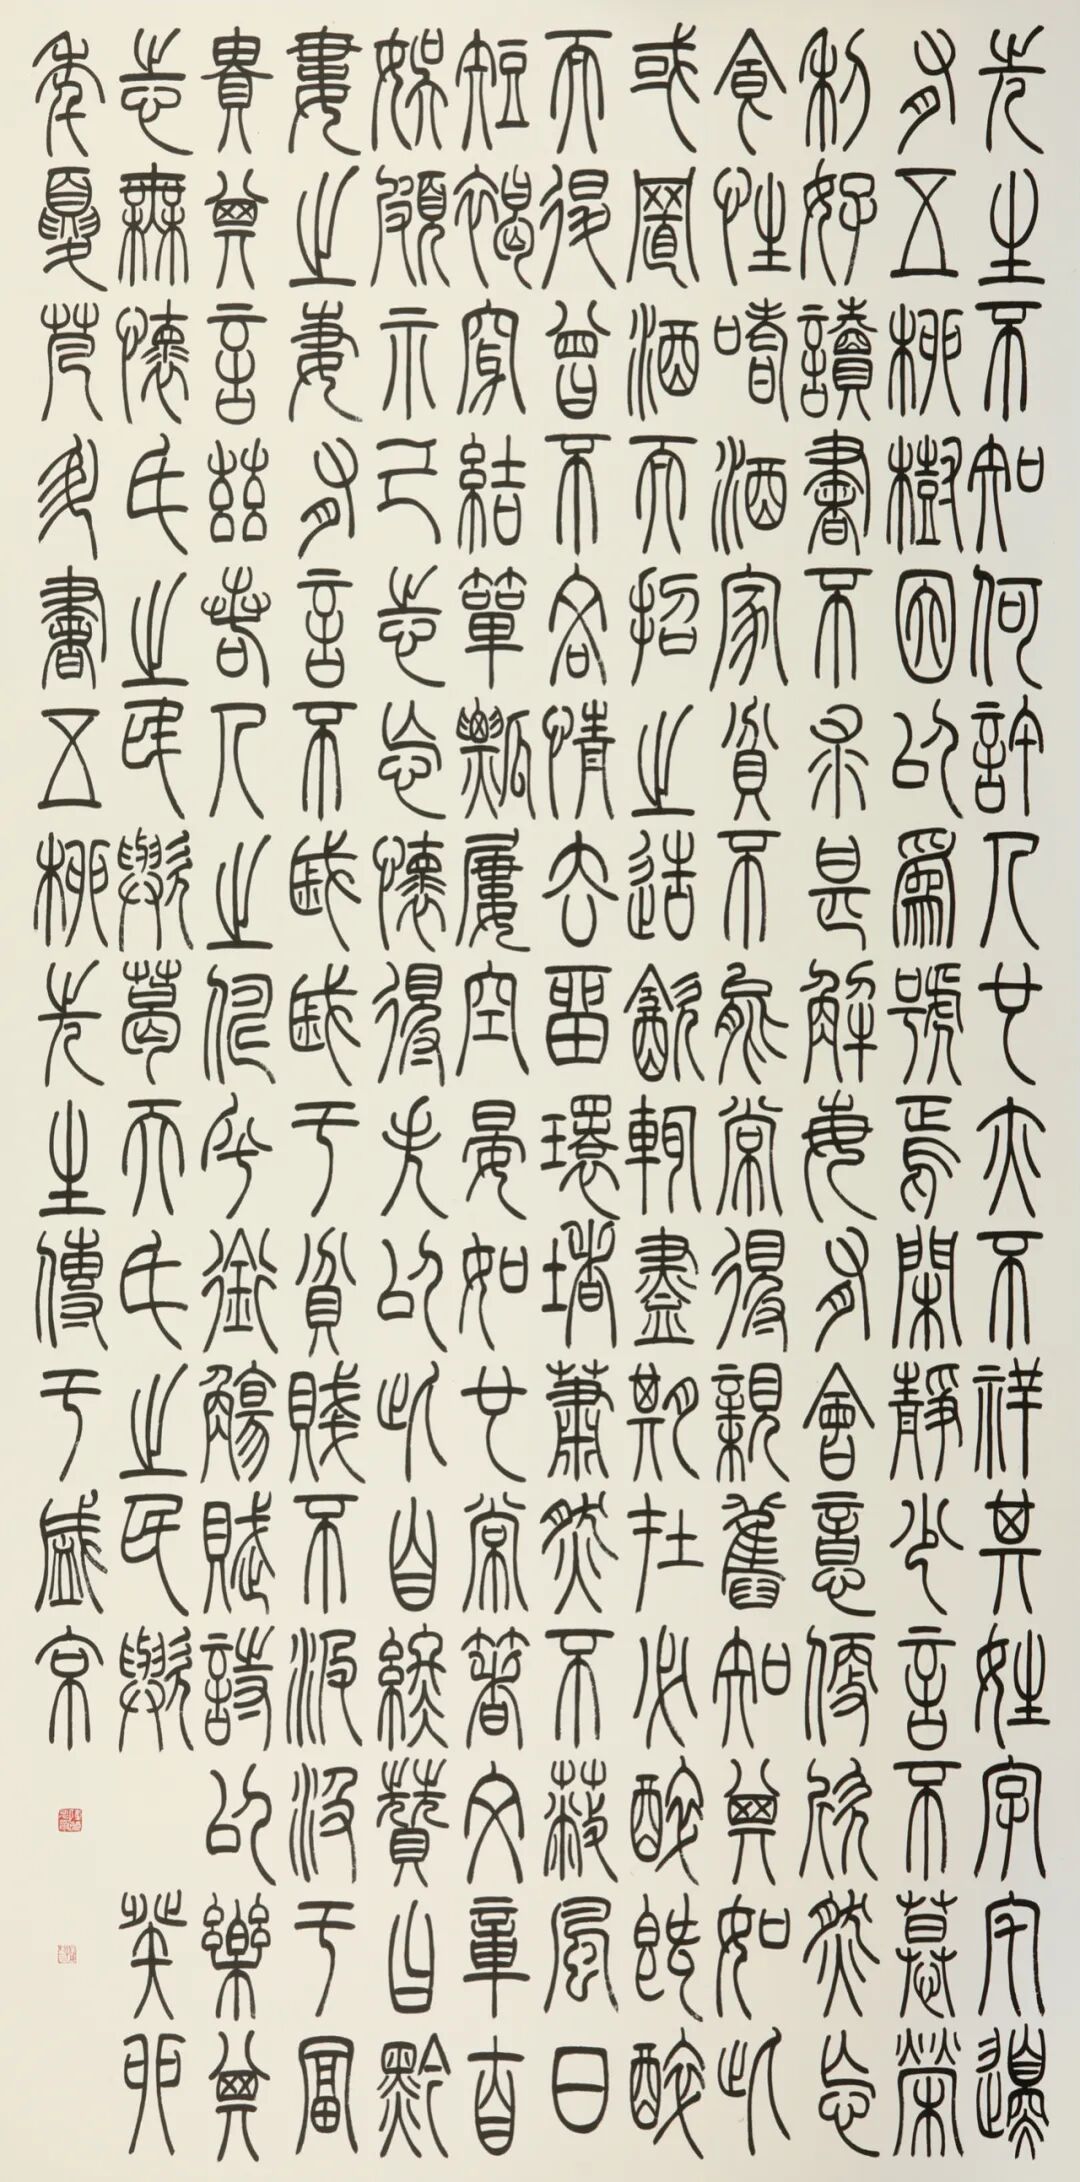 先生不知何許人也亦不祥其姓字宅邊
有五柳樹因以爲號焉閑靜少言不慕榮
利好讀書不求甚解每有會意便欣然忘
食性嗜酒家貧不能常得親舊知其如此
或置酒而招之造飲輒盡期在必醉既醉
而退曾不吝情去留環堵蕭然不蔽風日
短褐穿結簞瓢屢空晏如也常著文章自
娛頗示己志忘懷得失以此自終贊曰黔
婁之妻有言不戚戚于貧賤不汲汲于富
貴其言茲若人之儔乎銜觴賦詩以樂其
志無懷氏之民歟葛天氏之民歟 癸卯
年夏書五柳先生傳于盛京